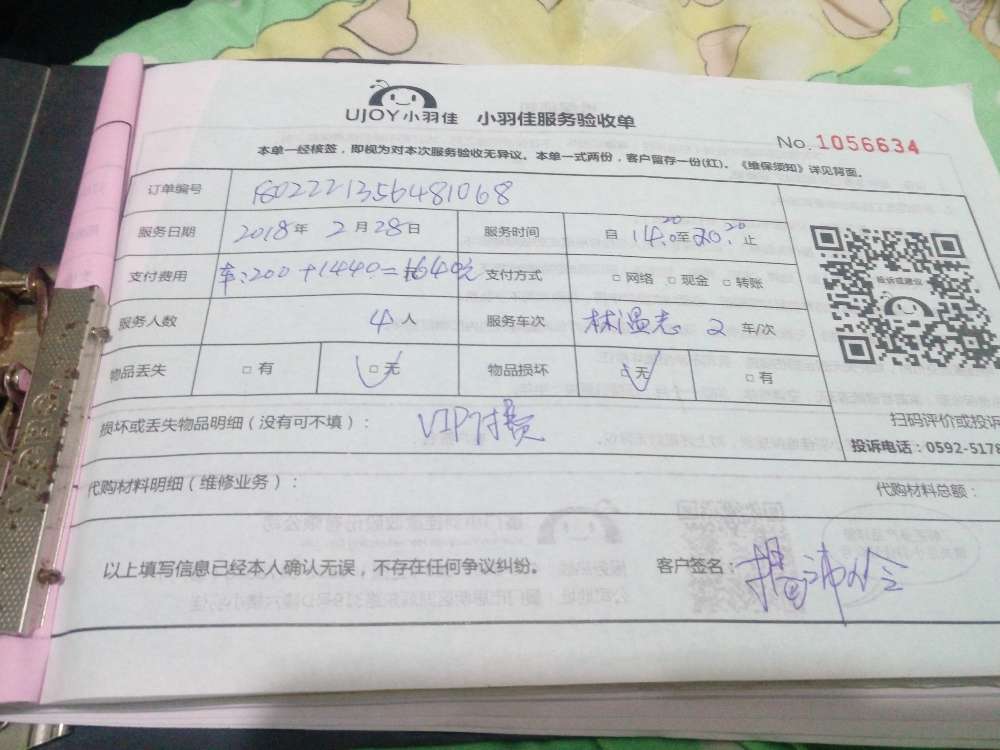 UJOY小羽佳 小羽佳服务验收单
No.1056634
本单一经核签，即视为对本次服务验收无异议。本单一式两份，客户留存一份(红)。《维保须知》详见背面。
订单编号 1802221356481068
服务日期 2018年2月28日 服务时间 自14:20至20:20止
支付费用 车:200+1440=1640元 支付方式 □网络 □现金 □转账
服务人数 4人 服务车次 林温志 2 车/次
物品丢失 □有 □无 物品损坏 □无 □有
投诉或建议
扫码评价或投诉
投诉电话：0592-5178
损坏或丢失物品明细（没有可不填）： VIP付费
代购材料明细（维修业务）： 代购材料总额：
以上填写信息已经本人确认无误，不存在任何争议纠纷。 客户签名：